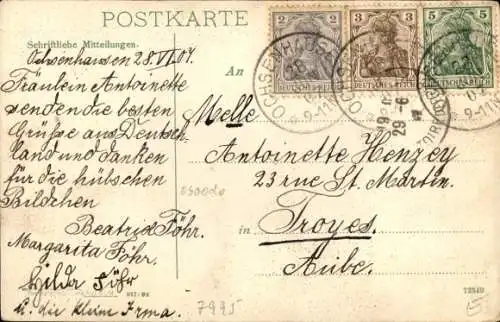 POSTKARTE
Schriftliche Mitteilungen.
Ochsenhausen 28.VI.04.
Fräulein Antoinette
senden die besten
Grüße aus Deutsch-
land und danken
für die hübschen
Bildchen
Beatrix Föhr.
Margarita Föhr.
Hilda Föhr
u. die kleine Irma.
2
DEUTSCHES REICH
3
DEUTSCHES REICH
5
DEUTSCHES REICH
OCHSENHAUSEN
28
9-11
OCHSENHAUSEN
9-11
29-6
An
Melle
Antoinette Henzey
23 rue St. Martin.
in Troyes.
Aube.
7995